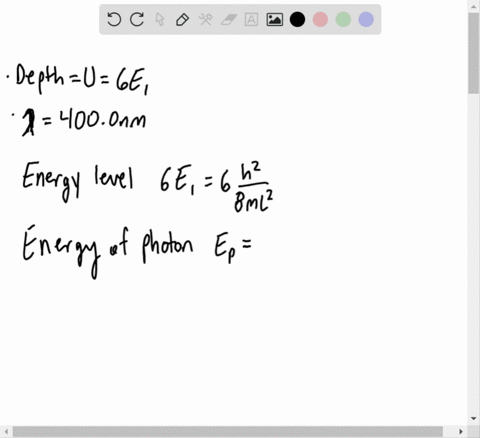 · Depth = U = 6E₁
· λ = 400.0nm
Energy level 6E₁ = 6 h²/8mL²
Energy of photon Eₚ =